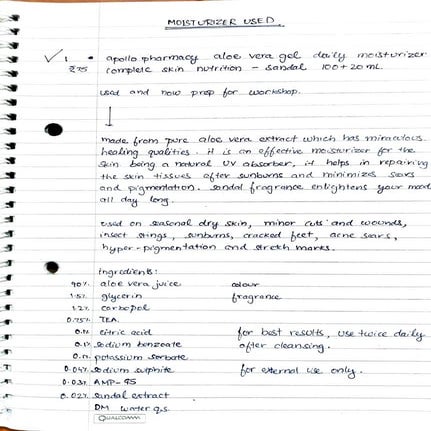 MOISTURIZER USED.
✓ 1 • apollo pharmacy aloe vera gel daily moisturizer
₹75 complete skin nutrition - sandal 100 + 20 mL.
used and now prep for workshop.
↓
made from pure aloe vera extract which has miraculous
healing qualities. it is an effective moisturizer for the
skin being a natural UV absorber, it helps in repairing
the skin tissues after sunburns and minimizes scars
and pigmentation. sandal fragrance enlightens your mood
all day long.
used on seasonal dry skin, minor cuts and wounds,
insect stings, sunburns, cracked feet, acne scars,
hyper-pigmentation and stretch marks.
ingredients:
90% aloe vera juice colour
1.5% glycerin fragrance
1.2% carbopol
0.75% TEA
0.1% citric acid for best results, use twice daily
0.1% sodium benzoate after cleansing.
0.1% potassium sorbate
0.04% sodium sulphite for external use only.
0.03% AMP-95
0.02% sandal extract
DM water q.s.
QUALCOMM